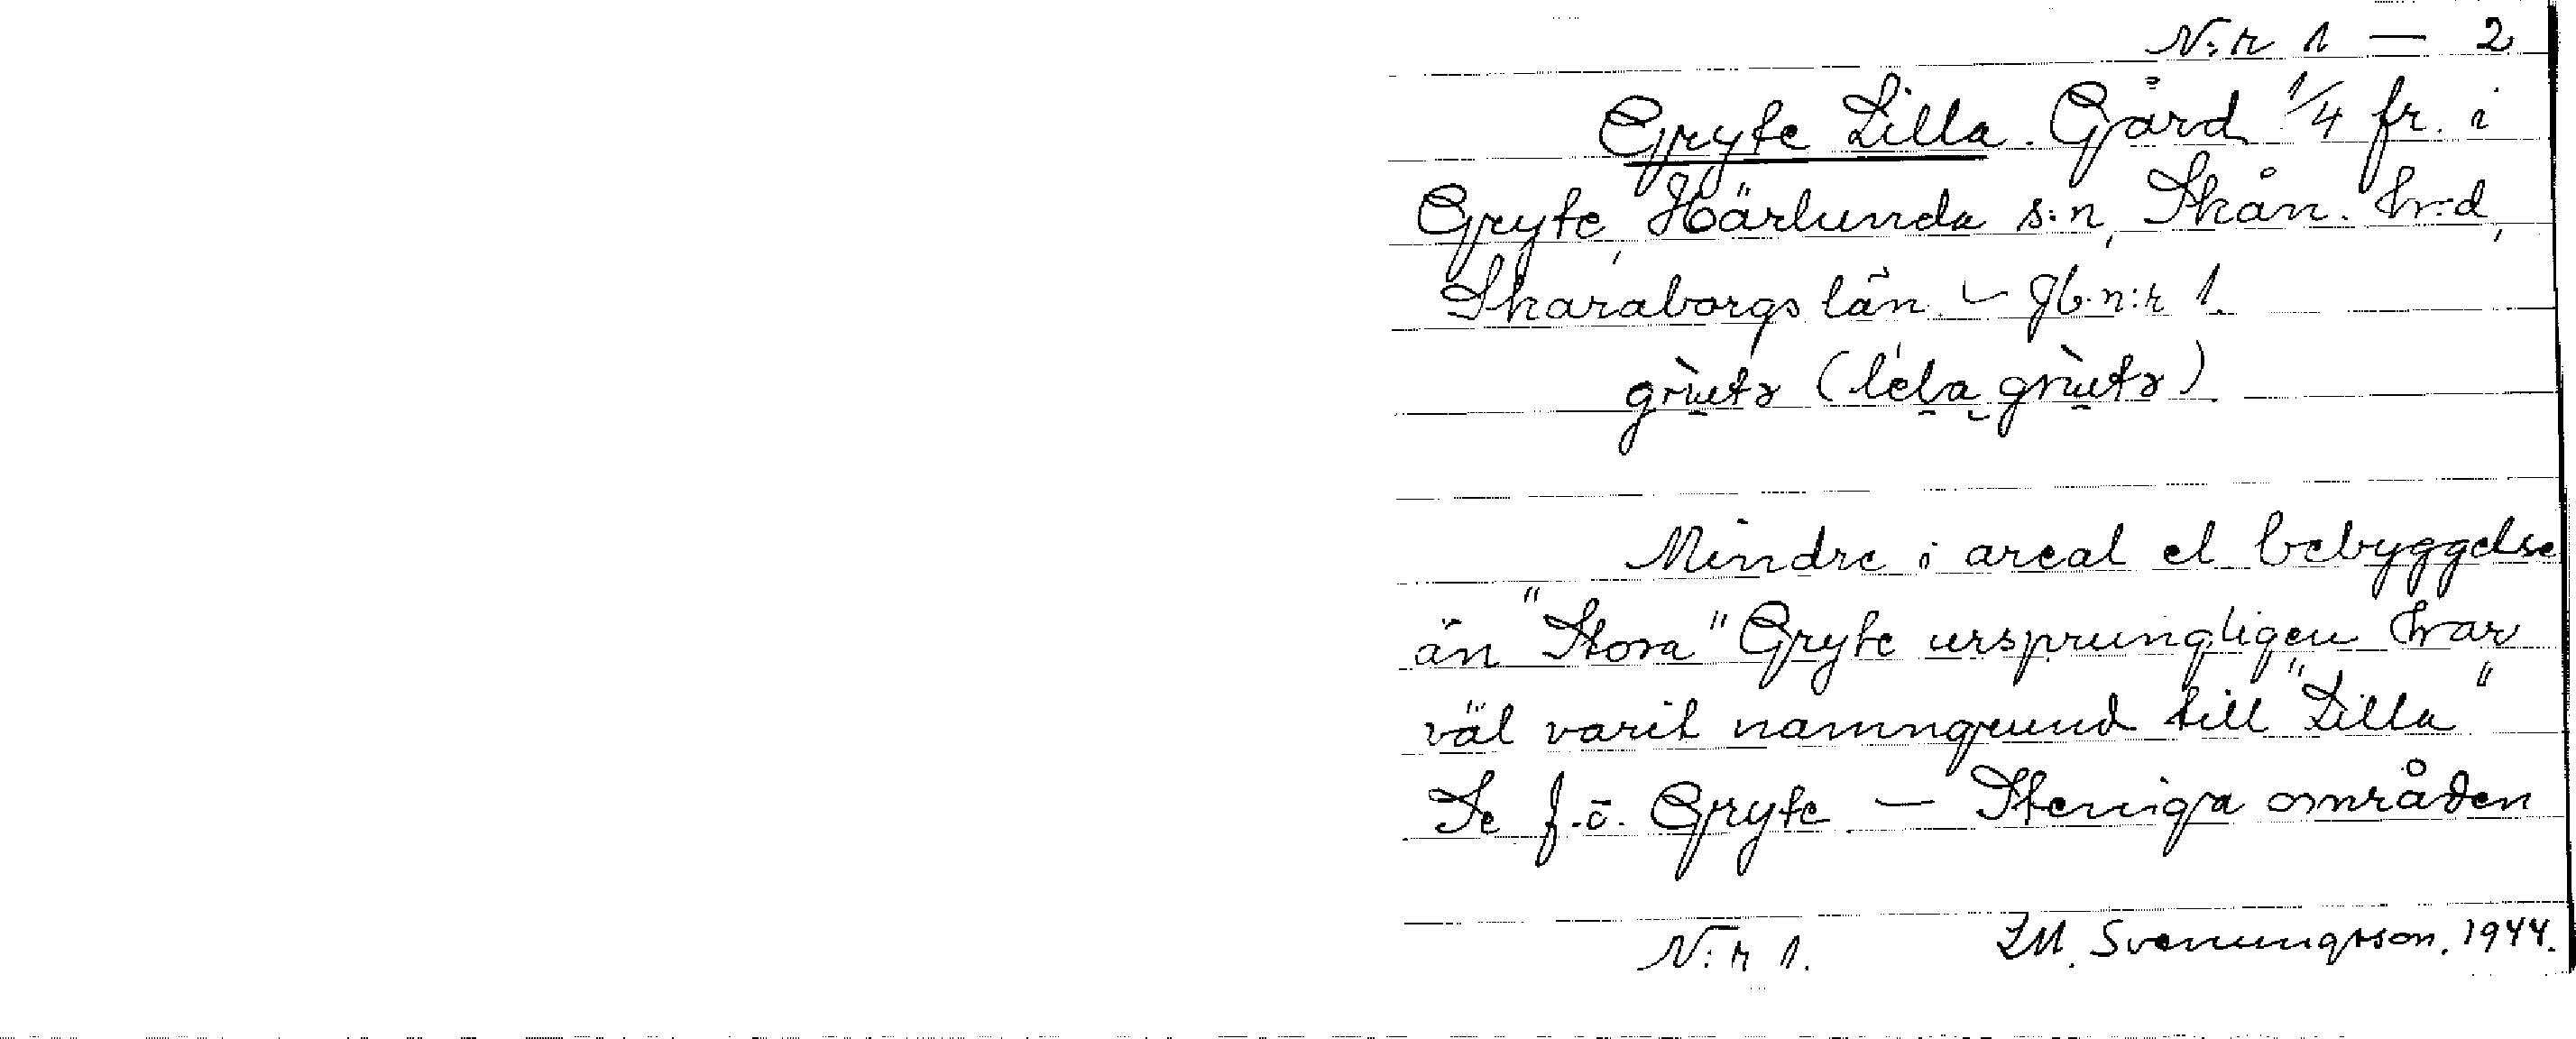 N:r 1 — 2
Gryte Lilla. Gård 1/4 fr. i
Gryte, Härlunda s:n, Skån. hr:d,
Skaraborgs län. – Jb. n:r 1.
Mindre i areal el bebyggelse
än "Stora" Gryte ursprungligen har
väl varit namngrund till "Lilla"
Se f.ö. Gryte — Steniga områden
N:r 1. Svenungsson. 1944.